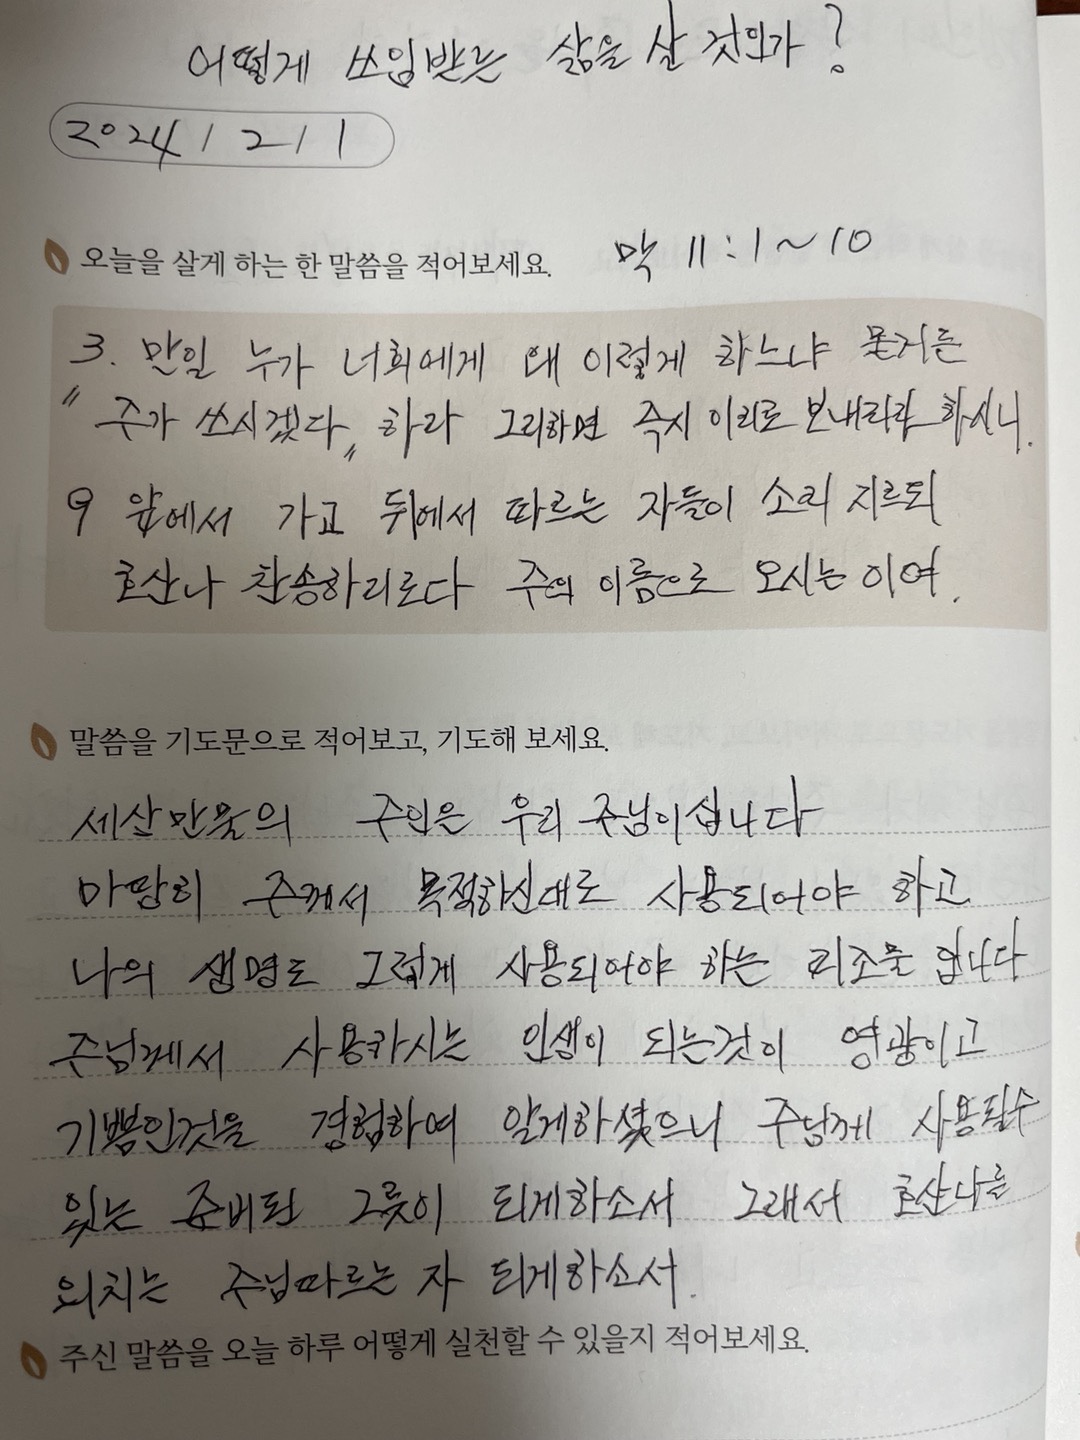 어떻게 쓰임받는 삶을 살 것인가?
2024 / 2 / 1
오늘을 살게 하는 한 말씀을 적어보세요.
막 11:1~10
3. 만일 누가 너희에게 왜 이렇게 하느냐 묻거든
"주가 쓰시겠다" 하라 그리하면 즉시 이리로 보내리라 하시니.
9 앞에서 가고 뒤에서 따르는 자들이 소리 지르되
호산나 찬송하리로다 주의 이름으로 오시는 이여.
말씀을 기도문으로 적어보고, 기도해 보세요.
세상만물의 주인은 우리 주님이십니다
마땅히 주께서 목적하신대로 사용되어야 하고
나의 생명도 그렇게 사용되어야 하는 피조물 입니다
주님께서 사용하시는 인생이 되는것이 영광이고
기쁨인것을 경험하여 알게하셨으니 주님께 사용될수
있는 준비된 그릇이 되게하소서 그래서 호산나를
외치는 주님따르는 자 되게하소서.
주신 말씀을 오늘 하루 어떻게 실천할 수 있을지 적어보세요.